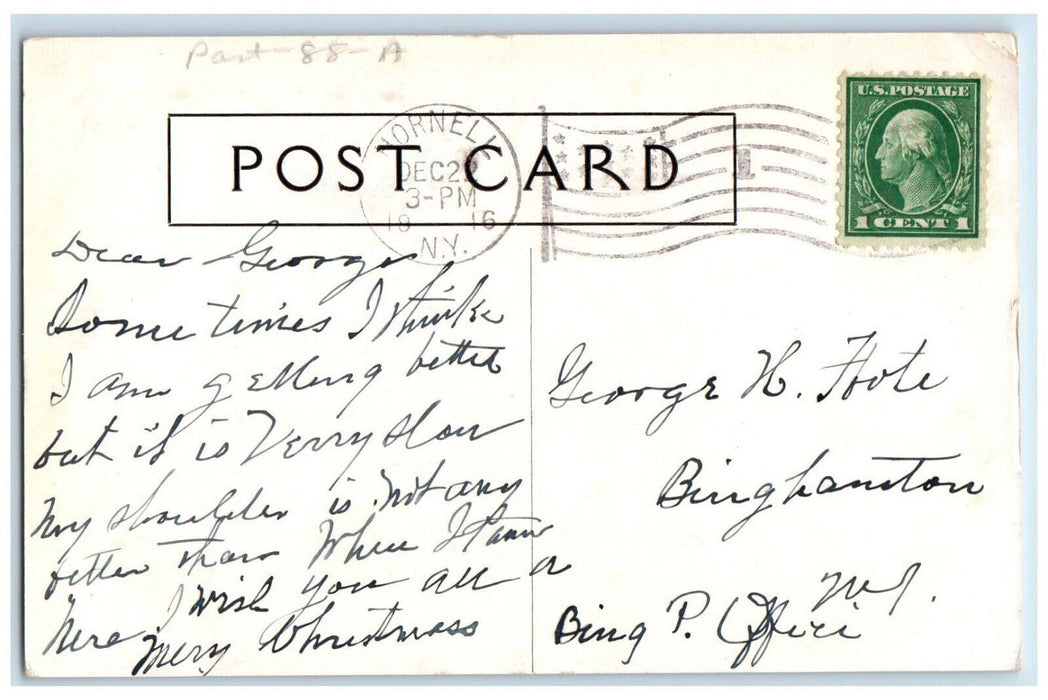 Part-88-A
U.S.POSTAGE
1 CENT 1
HORNELL
DEC 22
3-PM
19 16
N.Y.
POST CARD
Dear George
Some times I think
I am getting better
but it is Verry slow
my shoulder is Not any
better than When I came
here I wish you all a
Mery Christmass
George H. Hote
Binghamton
N.Y.
Bing P. Office